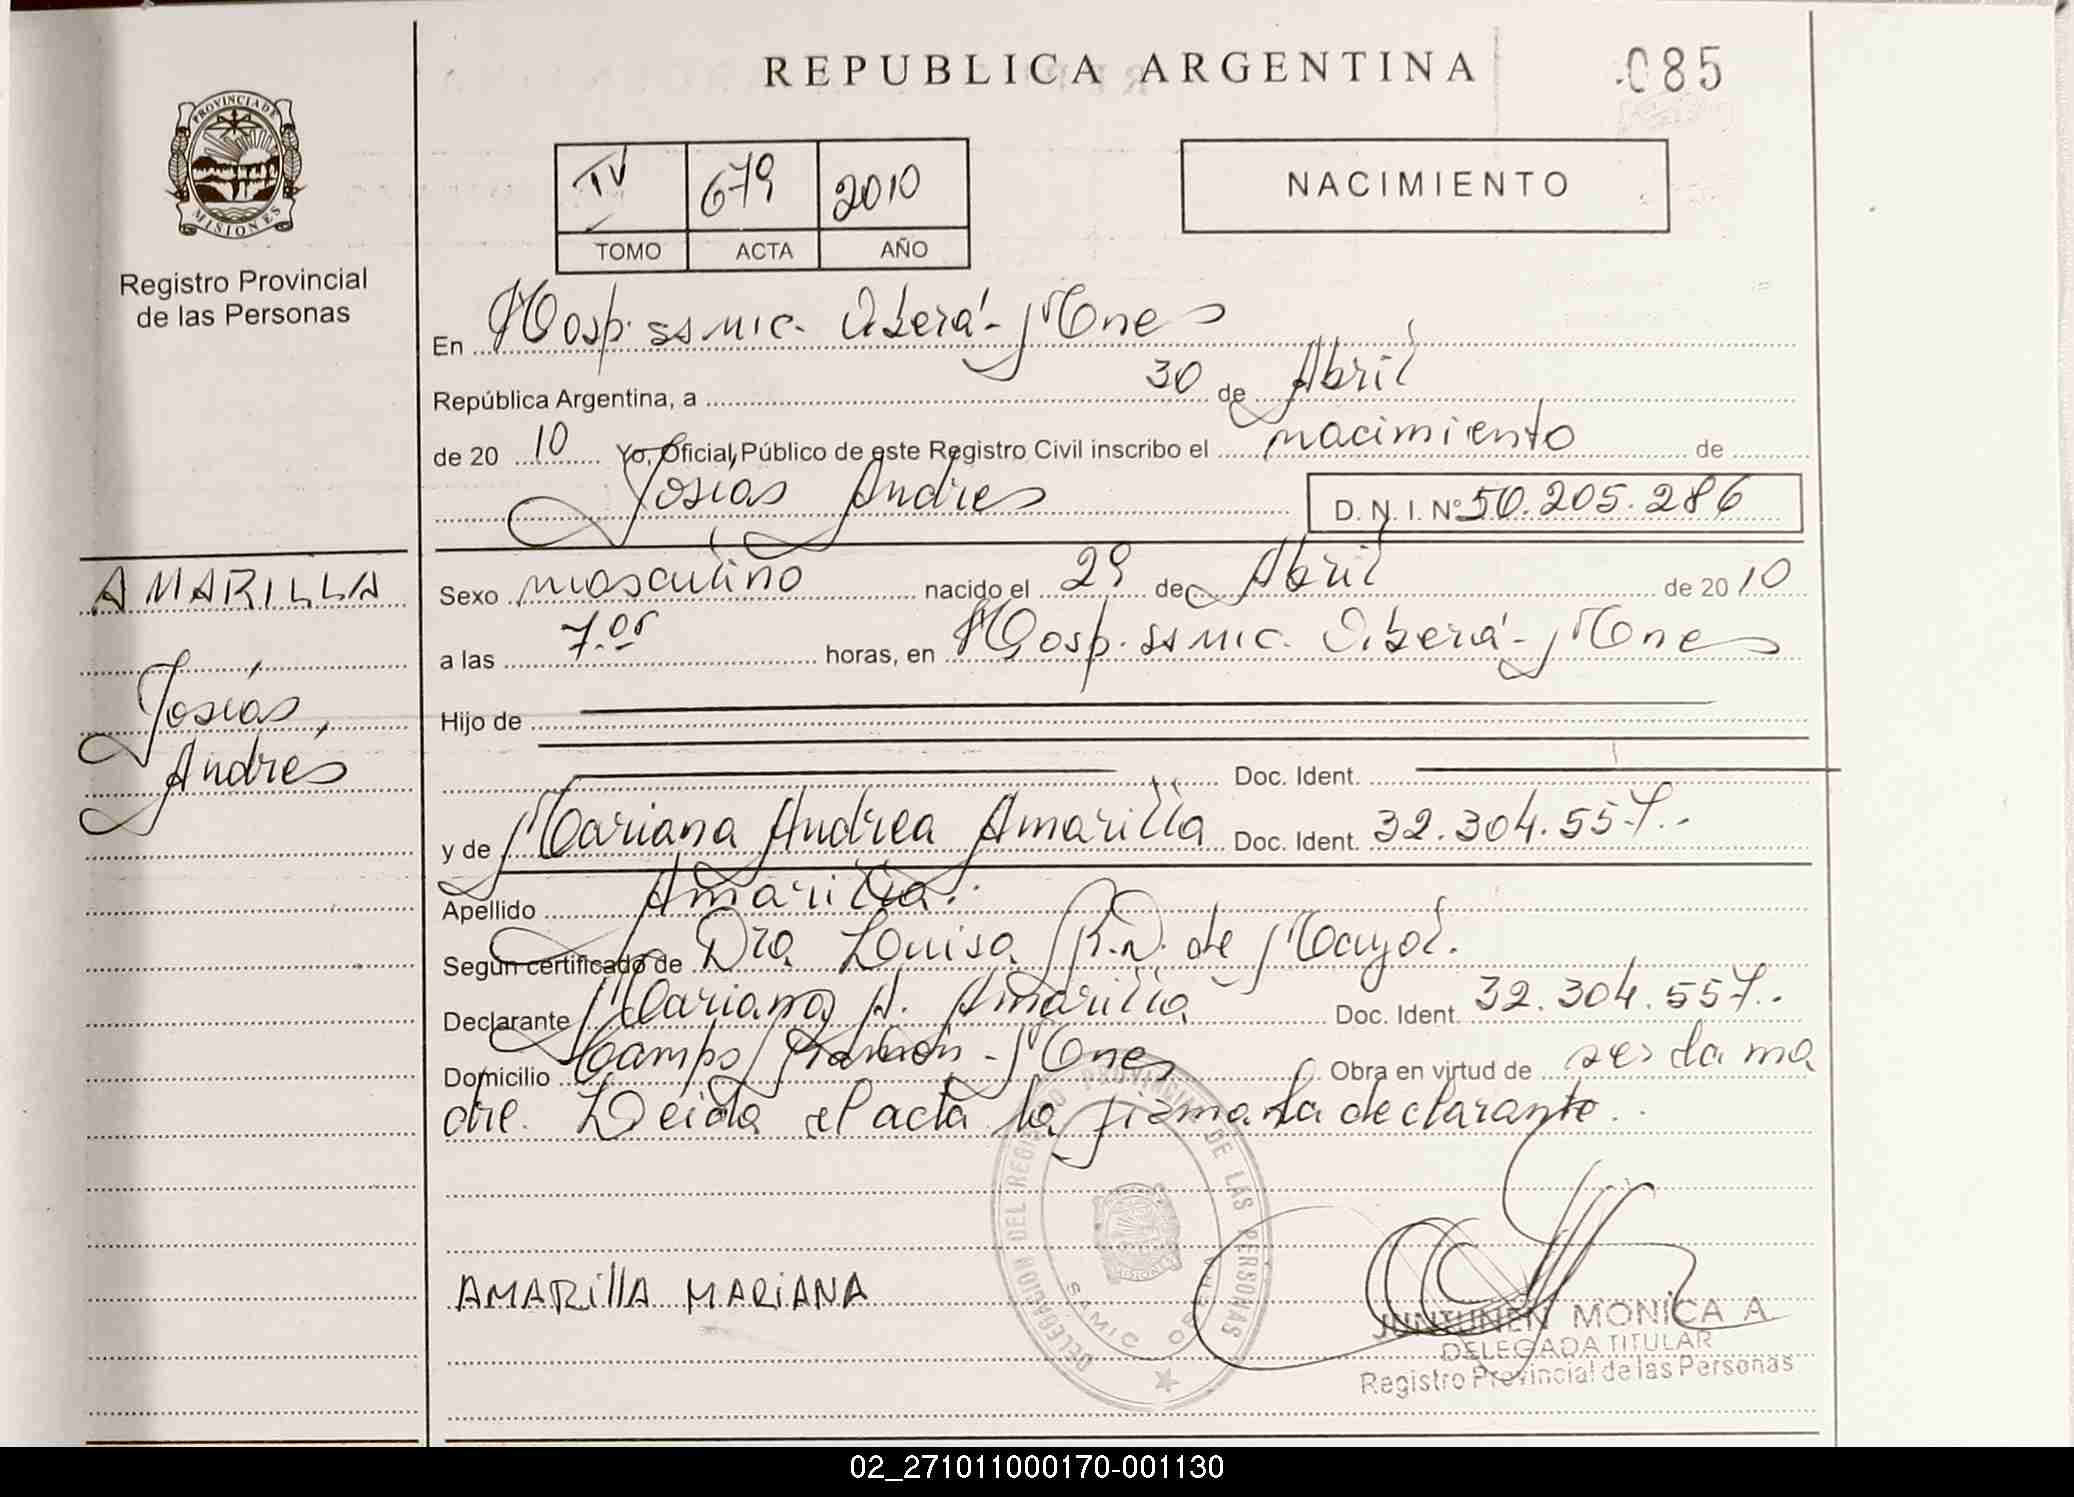 REPUBLICA ARGENTINA
085
PROVINCIA DE
MISIONES
Registro Provincial
de las Personas
IV 679 2010
TOMO ACTA AÑO
NACIMIENTO
En Hosp. ss mic. Oberá - Mnes
República Argentina, a 30 de Abril
de 20 10 Yo, Oficial Público de este Registro Civil inscribo el nacimiento de
Josías Andres
D. N. I. Nº 50.205.286
AMARILLA
Josías
Andrés
Sexo masculino nacido el 29 de Abril de 20 10
a las 7.05 horas, en Hosp. ss mic. Oberá - Mnes
Hijo de
Doc. Ident.
y de Mariana Andrea Amarilla Doc. Ident. 32.304.557.-
Apellido Amarilla.
Según certificado de Dra Louisa R.D. de Mayol.
Declarante Mariana A. Amarilla Doc. Ident. 32.304.557.-
Domicilio Campo Ramón - Mnes Obra en virtud de ser la ma
dre. Leída el acta la firma la declarante.
DELEGACION DEL REGISTRO PROVINCIAL DE LAS PERSONAS
SAMIC OBERA
AMARillA MARiANA
JUNTUNEN MONICA A
DELEGADA TITULAR
Registro Provincial de las Personas
02_271011000170-001130